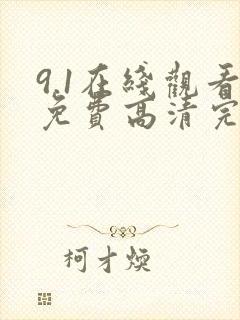 9.1在綫觀看
免費高清完
柯才煥